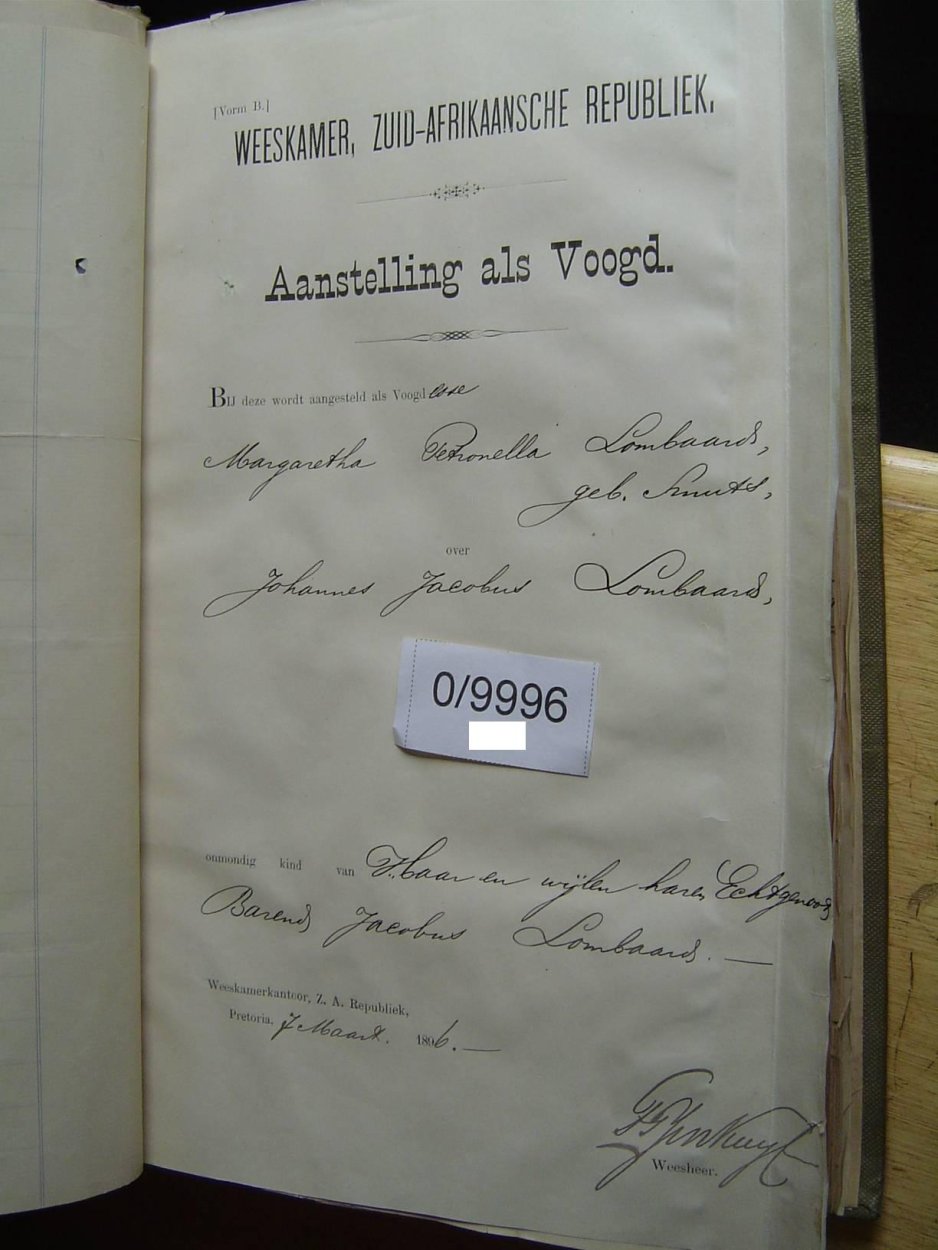 [Vorm B.]
WEESKAMER, ZUID-AFRIKAANSCHE REPUBLIEK.
Aanstelling als Voogd.
BIJ deze wordt aangesteld als Voogdesse
Margaretha Petronella Lombaard,
geb. Smuts,
over
Johannes Jacobus Lombaard,
0/9996
onmondig kind van Haar en wijlen haren Echtgenoot
Barend Jacobus Lombaard. —
Weeskamerkantoor, Z. A. Republiek,
Pretoria, 7 Maart. 1896. —
Weesheer.